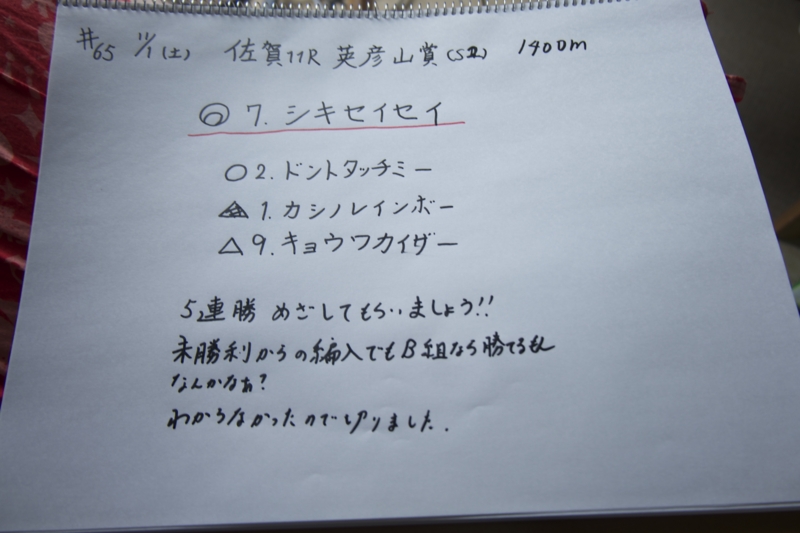 #65 11/1(土) 佐賀11R 英彦山賞(SⅡ) 1400m
◎7.シキセイセイ
○2.ドントタッチミー
▲1.カシノレインボー
△9.キョウワカイザー
5連勝めざしてもらいましょう!!
未勝利からの編入でもB組なら勝てるもん
なんかなぁ?
わからなかったので切りました.